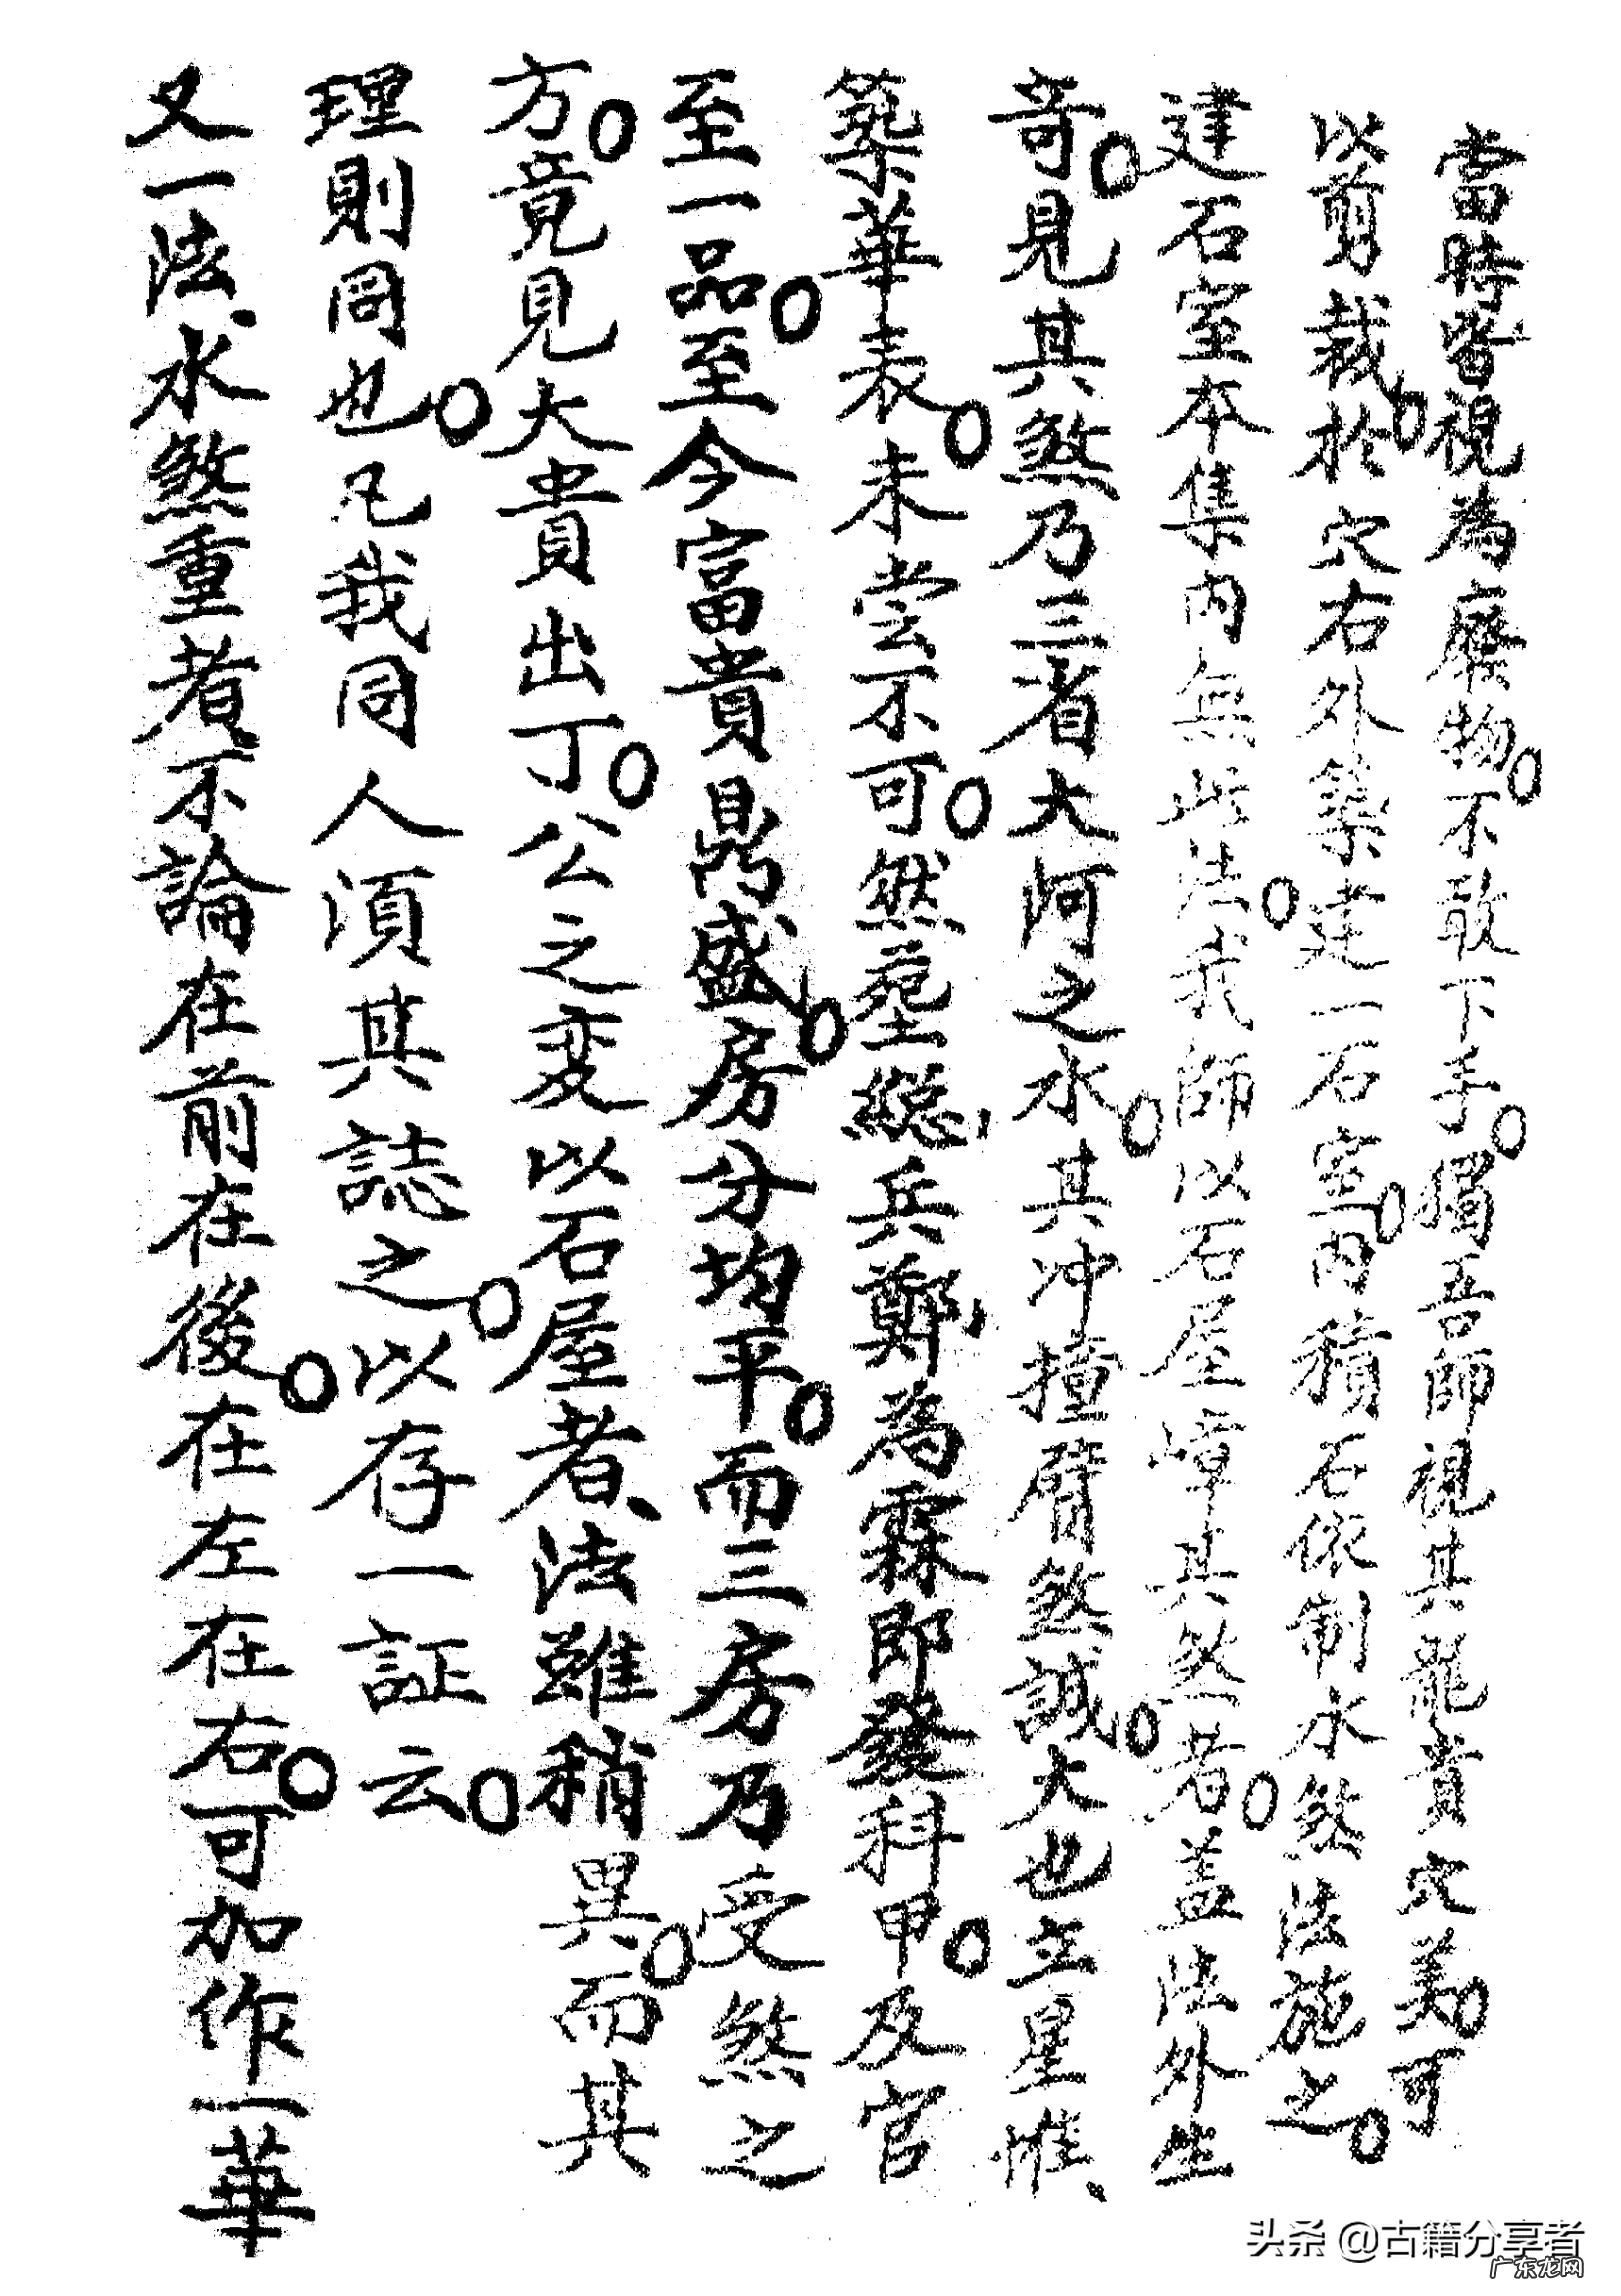 當時皆視為廢物。不敢下手。獨吾師視其龍貴穴美。可
以剪裁。於穴右外築建一石室。內積石依制水煞法施之。
建石室本集內無此法。我師以石屋嶂其煞者。盖法外生
奇。見其煞乃三省大河之水。其冲撞臂煞誠。大也立星惟、
築華表。未尝不可。然塟縂兵鄭為霖即發科甲。及官
至一品。至今富貴鼎盛。房分均平。而三房乃受煞之
方。竟見大貴出丁。公之変以石屋者、法雖稍異。而其
理則同也。凡我同人須其誌之。以存一証云。
又一法、水煞重者不論在前在後。在左在右。可加作一華
头条 @古籍分享者
广东龙网